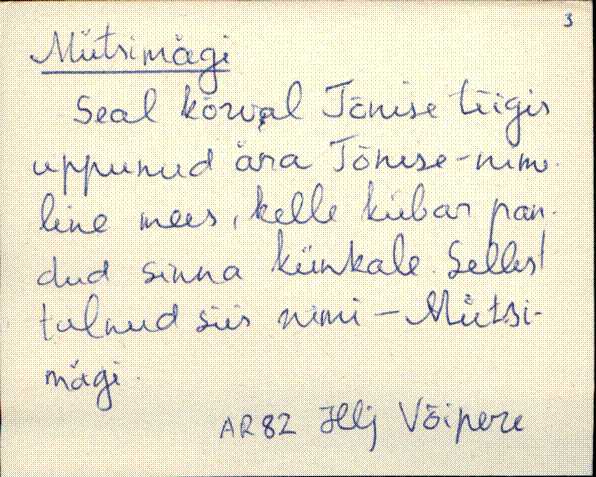 3
Mütsimägi
Seal kõrval Tõnise tiigis
uppunud ära Tõnise-nimi-
line mees, kelle kübar pan-
dud sinna künkale. Sellest
tulnud siis nimi – Mütsi-
mägi.
AR82 Hlj Võipere